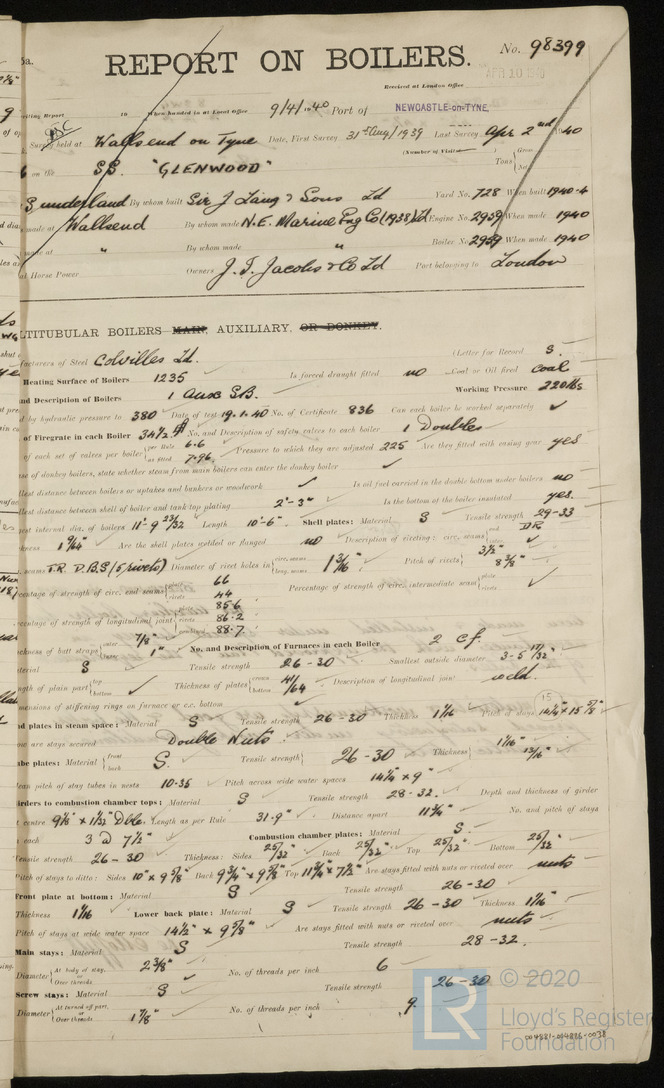 5a.
REPORT ON BOILERS.
No. 98399
Received at London Office
APR 10 1940
Writing Report 19 When handed in at Local Office 9/4/1940 Port of NEWCASTLE-on-TYNE.
Survey held at Wallsend on Tyne Date, First Survey 31st Aug/1939 Last Survey Apr 2nd 1940
(Number of Visits
on the S.S. "GLENWOOD" Tons { Gross Net
Sunderland By whom built Sir J Laing & Sons Ld Yard No. 728 When built 1940-4
made at Wallsend By whom made N.E. Marine Eng Co (1938) Ld Engine No. 2959 When made 1940
made at " By whom made " Boiler No. 2959 When made 1940
al Horse Power Owners J. T. Jacobs & Co Ld Port belonging to London
LTITUBULAR BOILERS MAIN, AUXILIARY, OR DONKEY.
facturers of Steel Colvilles Ld. (Letter for Record S.
Heating Surface of Boilers 1235 Is forced draught fitted no Coal or Oil fired coal
and Description of Boilers 1 Aux S.B. Working Pressure 220 lbs
d by hydraulic pressure to 380 Date of test 19.1.40 No. of Certificate 836 Can each boiler be worked separately ✓
of Firegrate in each Boiler 34½ No. and Description of safety valves to each boiler 1 Doubles
of each set of valves per boiler { per Rule 6.6 as fitted 7.96 Pressure to which they are adjusted 225 Are they fitted with easing gear yes
se of donkey boilers, state whether steam from main boilers can enter the donkey boiler ✓
llest distance between boilers or uptakes and bunkers or woodwork ✓ Is oil fuel carried in the double bottom under boilers no
llest distance between shell of boiler and tank top plating 2'-3" Is the bottom of the boiler insulated yes.
est internal dia. of boilers 11'-9 23/32 Length 10'-6" Shell plates: Material S Tensile strength 29-33
kness 1 9/64" Are the shell plates welded or flanged no Description of riveting: circ. seams { end DR
. seams T.R. D.B.S (5 rivets) Diameter of rivet holes in { circ. seams long. seams 1 3/16" Pitch of rivets { 3½" 8⅜"
centage of strength of circ. end seams { plate 66 rivets 44 Percentage of strength of circ. intermediate seam { plate rivets ✓
centage of strength of longitudinal joint { plate 85.6 rivets 86.2 combined 88.7
ckness of butt straps { outer 7/8" inner 1" No. and Description of Furnaces in each Boiler 2 c.f.
terial S Tensile strength 26-30 Smallest outside diameter 3-5 17/32"
gth of plain part { top bottom ✓ Thickness of plates { crown bottom 41/64 Description of longitudinal joint weld.
mensions of stiffening rings on furnace or c.c. bottom ✓
d plates in steam space: Material S Tensile strength 26-30 Thickness 1 1/16 Pitch of stays 14¼" × 15⅝"
ow are stays secured Double Nuts
ube plates: Material { front back S. Tensile strength { 26-30 Thickness { 1 1/16" 13/16"
ean pitch of stay tubes in nests 10.35 Pitch across wide water spaces 14¼" × 9"
irders to combustion chamber tops: Material S Tensile strength 28-32. Depth and thickness of girder
t centre 9⅛" × 1 1/32" Dble. Length as per Rule 31.9" Distance apart 11¾" No. and pitch of stays
n each 3 @ 7½" Combustion chamber plates: Material S.
Tensile strength 26-30 Thickness: Sides 25/32" Back 25/32" Top 25/32" Bottom 25/32"
Pitch of stays to ditto: Sides 10" × 9⅝" Back 9¾" × 9⅝" Top 11¾" × 7½" Are stays fitted with nuts or riveted over nuts
Front plate at bottom: Material S Tensile strength 26-30
Thickness 1 1/16 Lower back plate: Material S Tensile strength 26-30 Thickness 1 1/16"
Pitch of stays at wide water space 14½" × 9⅝" Are stays fitted with nuts or riveted over nuts
Main stays: Material S Tensile strength 28-32.
Diameter { At body of stay, or Over threads 2⅜" No. of threads per inch 6
Screw stays: Material S Tensile strength 26-30
Diameter { At turned off part, or Over threads 1⅞" No. of threads per inch 9.
LR © 2020
Lloyd's Register
Foundation
004881-004886-0038